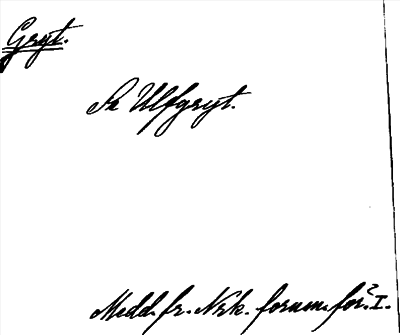 Gryt.
Se Ulfgryt.
Medd. fr. Nrk. fornm. för. I.